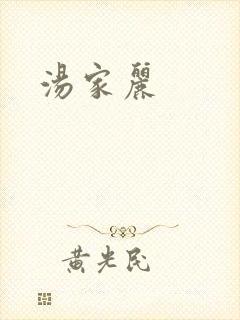 湯家麗
黄光民